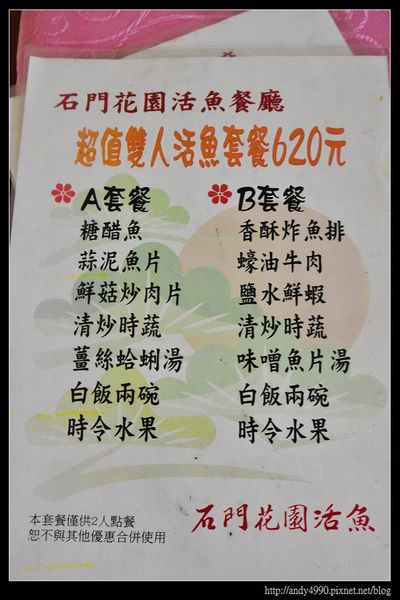 石門花園活魚餐廳
超值雙人活魚套餐620元
A套餐
糖醋魚
蒜泥魚片
鮮菇炒肉片
清炒時蔬
薑絲蛤蜊湯
白飯兩碗
時令水果
B套餐
香酥炸魚排
蠔油牛肉
鹽水鮮蝦
清炒時蔬
味噌魚片湯
白飯兩碗
時令水果
本套餐僅供2人點餐
恕不與其他優惠合併使用
石門花園活魚
http://andy4990.pixnet.net/blog